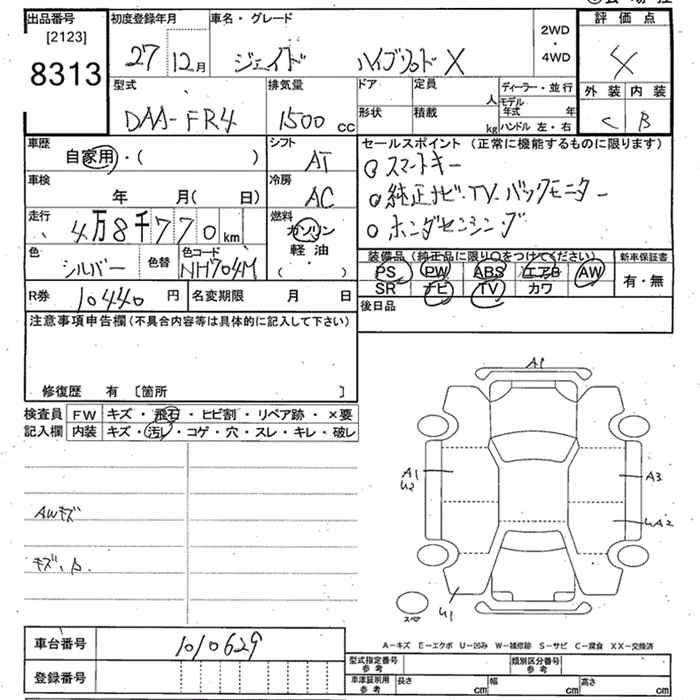 出品番号
[2123]
8313
初度登録年月
27 12月
車名・グレード
ジェイド ハイブリッド X
2WD
・
4WD
評価点
4
外装 内装
C B
型式
DAA-FR4
排気量
1500 cc
ドア
定員
人
形状
積載
kg
ディーラー・並行
モデル年式 年
ハンドル 左・右
車歴
自家用・( )
シフト
AT
セールスポイント（正常に機能するものに限ります）
スマートキー
純正ナビ・TV・バックモニター
ホンダセンシング
車検
年 月( 日)
冷房
AC
走行
4万8千770km
燃料
ガソリン
軽油
( ・ )
色
シルバー
色替
色コード
NH704M
装備品（純正品に限り〇をつけてください）
PS PW ABS エアB AW
SR ナビ TV カワ
新車保証書
有・無
R券 10440 円
名変期限 月 日
後日品
注意事項申告欄（不具合内容等は具体的に記入して下さい）
修復歴 有 〔箇所 〕
検査員
記入欄
FW キズ・飛石・ヒビ割・リペア跡・×要
内装 キズ・汚レ・コゲ・穴・スレ・キレ・破レ
AWキズ
A1
A1
U2
A3
UA2
U1
スペア
車台番号 1010629
登録番号
A－キズ E－エクボ U－凹み W－補修跡 S－サビ C－腐食 XX－交換済
型式指定番号
参考
類別区分番号
参考
車庫証明用
参考
長さ cm
幅 cm
高さ cm